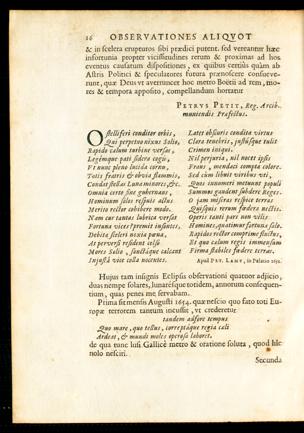 16 OBSERVATIONES ALIQVOT
& in scelera erupturos sibi prædici putent. sed vereantur hæc
infortunia propter vicissitudines rerum & proximas ad hos
eventus causatum dispositiones, ex quibus certiùs quàm ab
Astris Politici & speculatores futura prænoscere consueve-
runt, quæ Deus vt averruncet hoc metro Boëtii ad rem, mo-
res & tempora apposito, compellandum hortatur
PETRVS PETIT, Reg. Archib.
muniendis Præfectus.
O Stelliferi conditor orbis,
Qui perpetuo nixus Solio,
Rapido cælum turbine versas,
Legemque pati sidera cogis,
Vt nunc pleno lucida cornu,
Totis fratris & obvia flammis,
Condat stellas Luna minores, &c.
Omnia certo fine gubernans,
Hominum solos respuis actus
Merito rector cohibere modo.
Nam cur tantas lubrica versat
Fortuna vices? premit insontes,
Debita sceleri noxia pœna,
At perversi resident celso
Mores Solio, sanctáque calcant
Injustâ vice colla nocentes.
Latet obscuris condita virtus
Clara tenebris, justúsque tulit
Crimen iniqui.
Nil perjuria, nil nocet ipsis
Fraus, mendaci compta colore.
Sed cùm libuit viribus vti,
Quos innumeri metuunt populi
Summos gaudent subdere Reges.
O jam miseras respice terras
Quisquis rerum fœdera nectis.
Operis tanti pars non vilis
Homines, quatimur fortunæ salo.
Rapidos rector comprime fluctus,
Et quo cælum regis immensum
Firma stabiles fœdere terras.
Apud PET. LAMY, in Palatio 1652.
Hujus tam insignis Eclipsis observationi quatuor adjicio,
duas nempe solares, lunarésque totidem, annorum consequen-
tium, quas penes me servabam.
Prima sit mensis Augusti 1654. quæ nescio quo fato toti Eu-
ropæ terrorem tantum incussit, vt crederetur
tandem adfore tempus
Quo mare, quo tellus, correptáque regia cæli
Ardeat, & mundi moles operosa laboret.
de qua tunc lusi Gallicè metro & oratione soluta, quod hîc
nolo nesciri.
Secunda